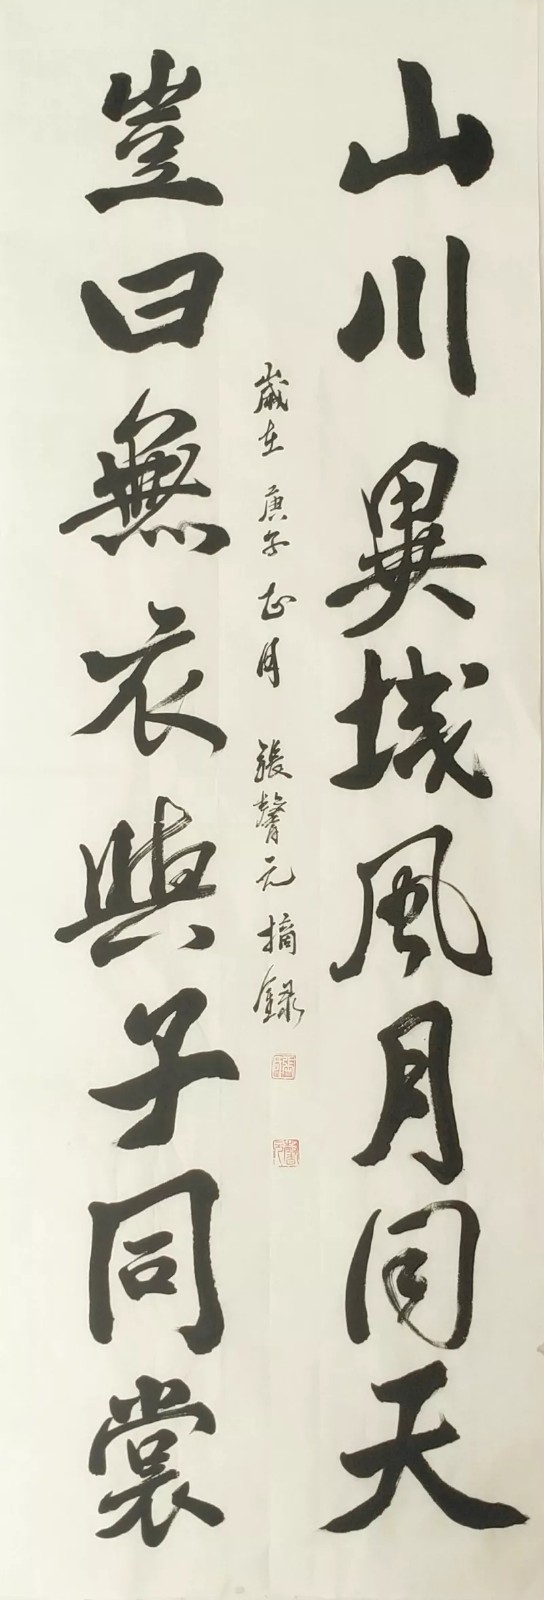 山川異域風月同天
豈曰無衣與子同裳
歲在庚子正月 張馨元摘録